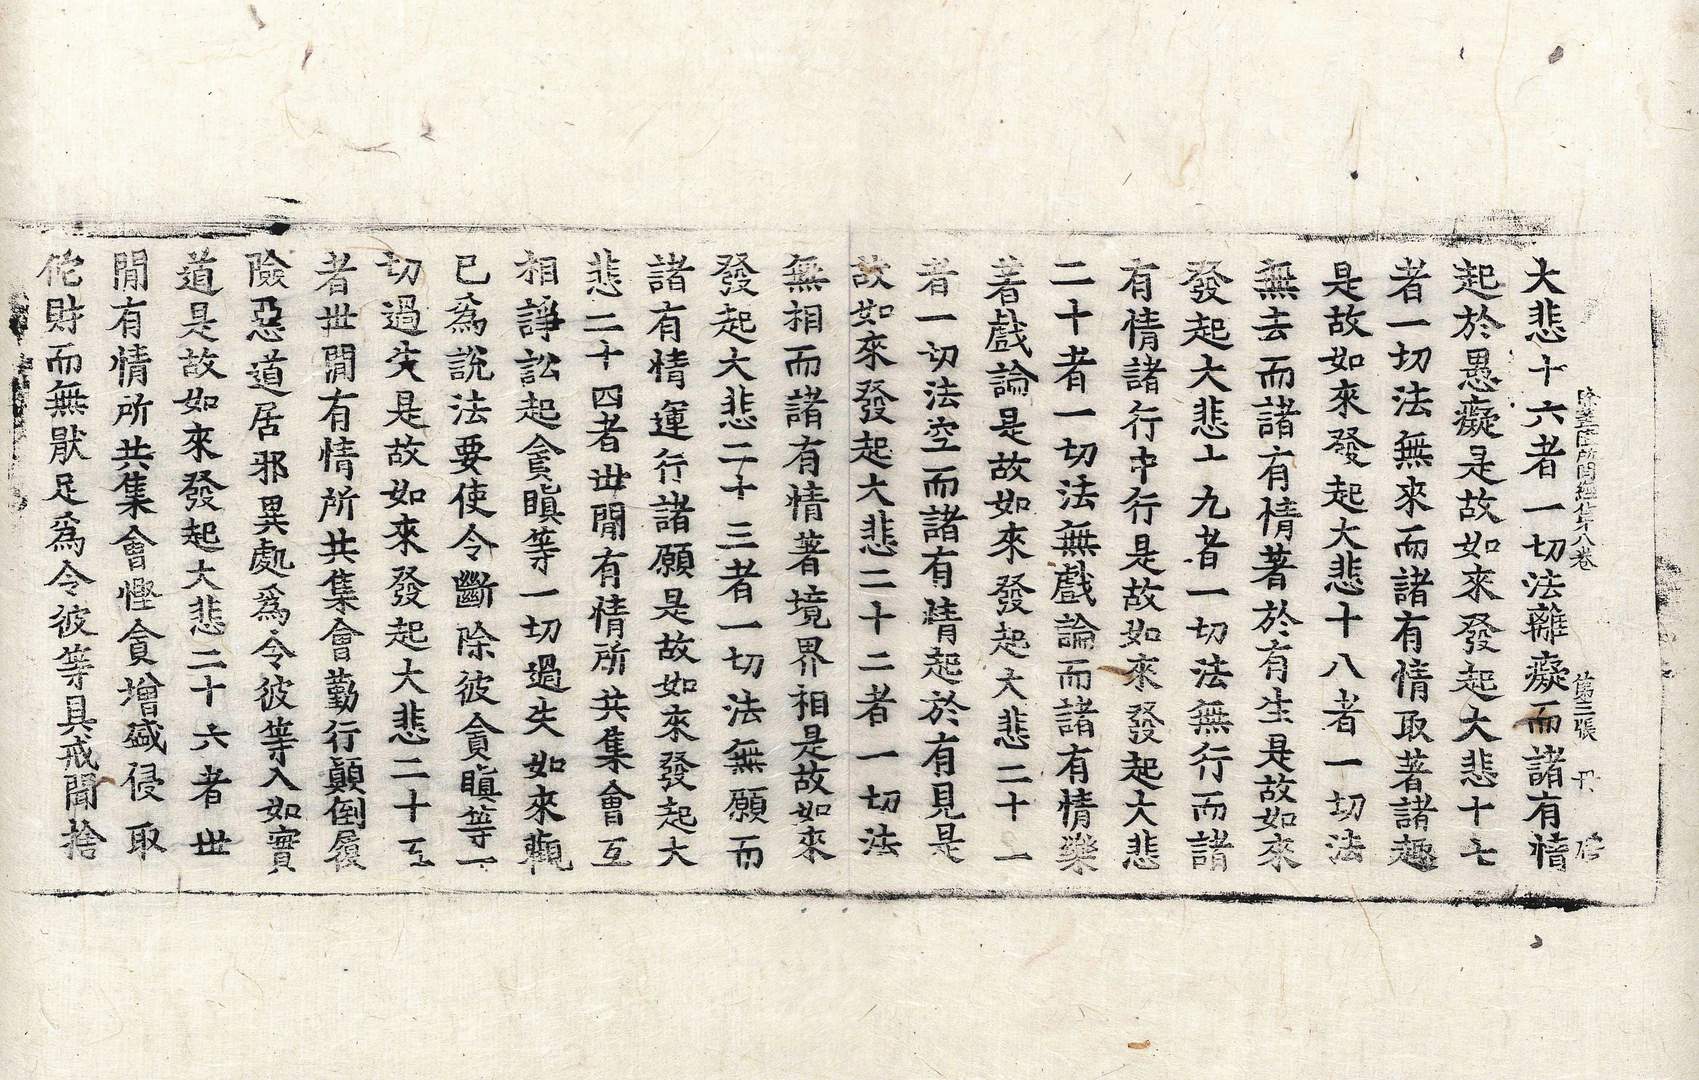 除蓋障所問經 第八卷 第三張
大悲十六者一切法離癡而諸有情
起於愚癡是故如來發起大悲十七
者一切法無來而諸有情取著諸趣
是故如來發起大悲十八者一切法
無去而諸有情著於有生是故如來
發起大悲十九者一切法無行而諸
有情諸行中行是故如來發起大悲
二十者一切法無戲論而諸有情樂
著戲論是故如來發起大悲二十一
者一切法空而諸有情起於有見是
故如來發起大悲二十二者一切法
無相而諸有情著境界相是故如來
發起大悲二十三者一切法無願而
諸有情運行諸願是故如來發起大
悲二十四者世間有情所共集會互
相諍訟起貪瞋等一切過失如來觀
已爲說法要使令斷除彼貪瞋等一
切過失是故如來發起大悲二十五
者世間有情所共集會勤行顚倒履
險惡道居邪異處爲令彼等入如實
道是故如來發起大悲二十六者世
間有情所共集會慳貪增盛侵取
佗財而無厭足爲令彼等具戒聞捨